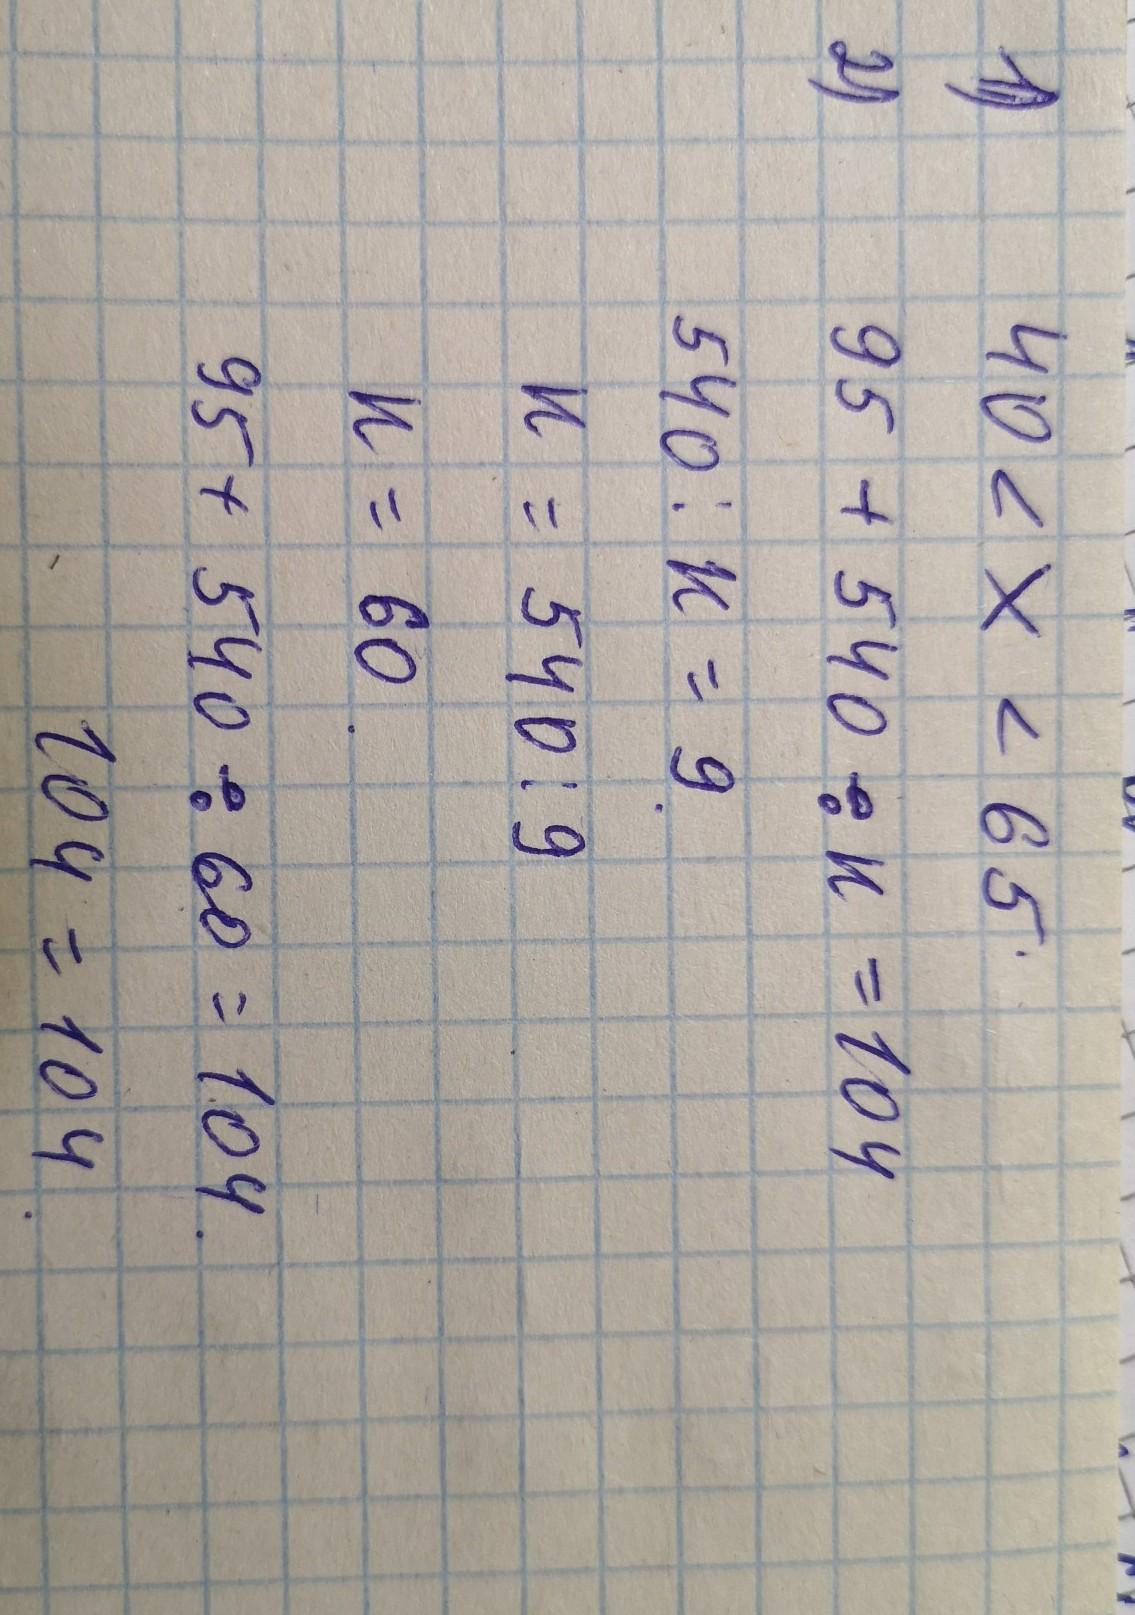 1) 40 < X < 65.
2) 95 + 540 ÷ n = 104
540 : n = 9.
n = 540 : 9
n = 60.
95 + 540 ÷ 60 = 104.
104 = 104.